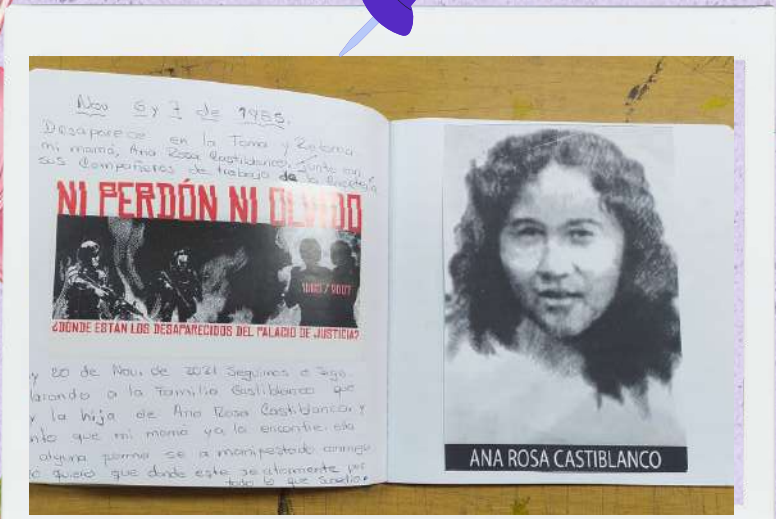 Nov 6 y 7 de 1985.
Desaparece en la Toma y Retoma
mi mamá, Ana Rosa Castiblanco, junto con
sus Compañeros de trabajo de la
NI PERDÓN NI OLVIDO
1985 / 2007
¿DÓNDE ESTÁN LOS DESAPARECIDOS DEL PALACIO DE JUSTICIA?
y 20 de Nov. de 2021 Seguimos o Sigo
a la Familia Castiblanco que
y la hija de Ana Rosa Castiblanco y
que mi mamá ya la encontre. ella
alguna forma se a manifestado conmigo
quiero que donde este se atormente por
todo lo que sucedio.
ANA ROSA CASTIBLANCO